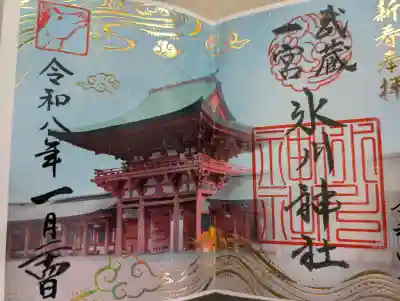 新春奉拝
武蔵
一宮
氷川神社
令和八年一月二日